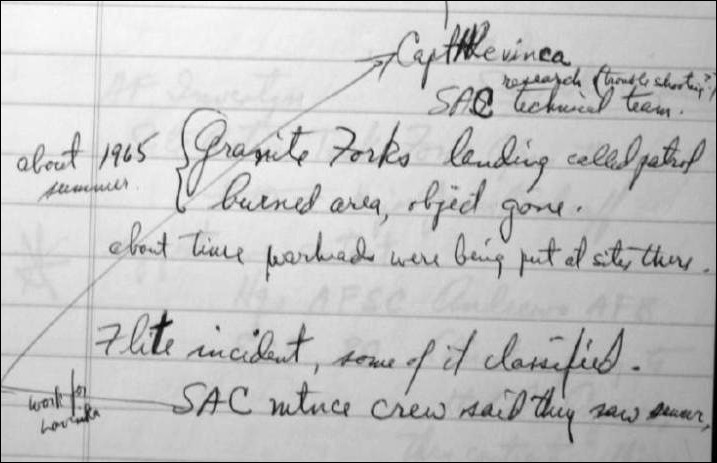 Capt
research (trouble shooting?)
SAC technical team.
about 1965 { Granite Forks landing called patrol
summer. burned area, object gone.
about time warheads were being put at sites there.
Flite incident, some of it classified.
work for SAC mtnce crew said they saw